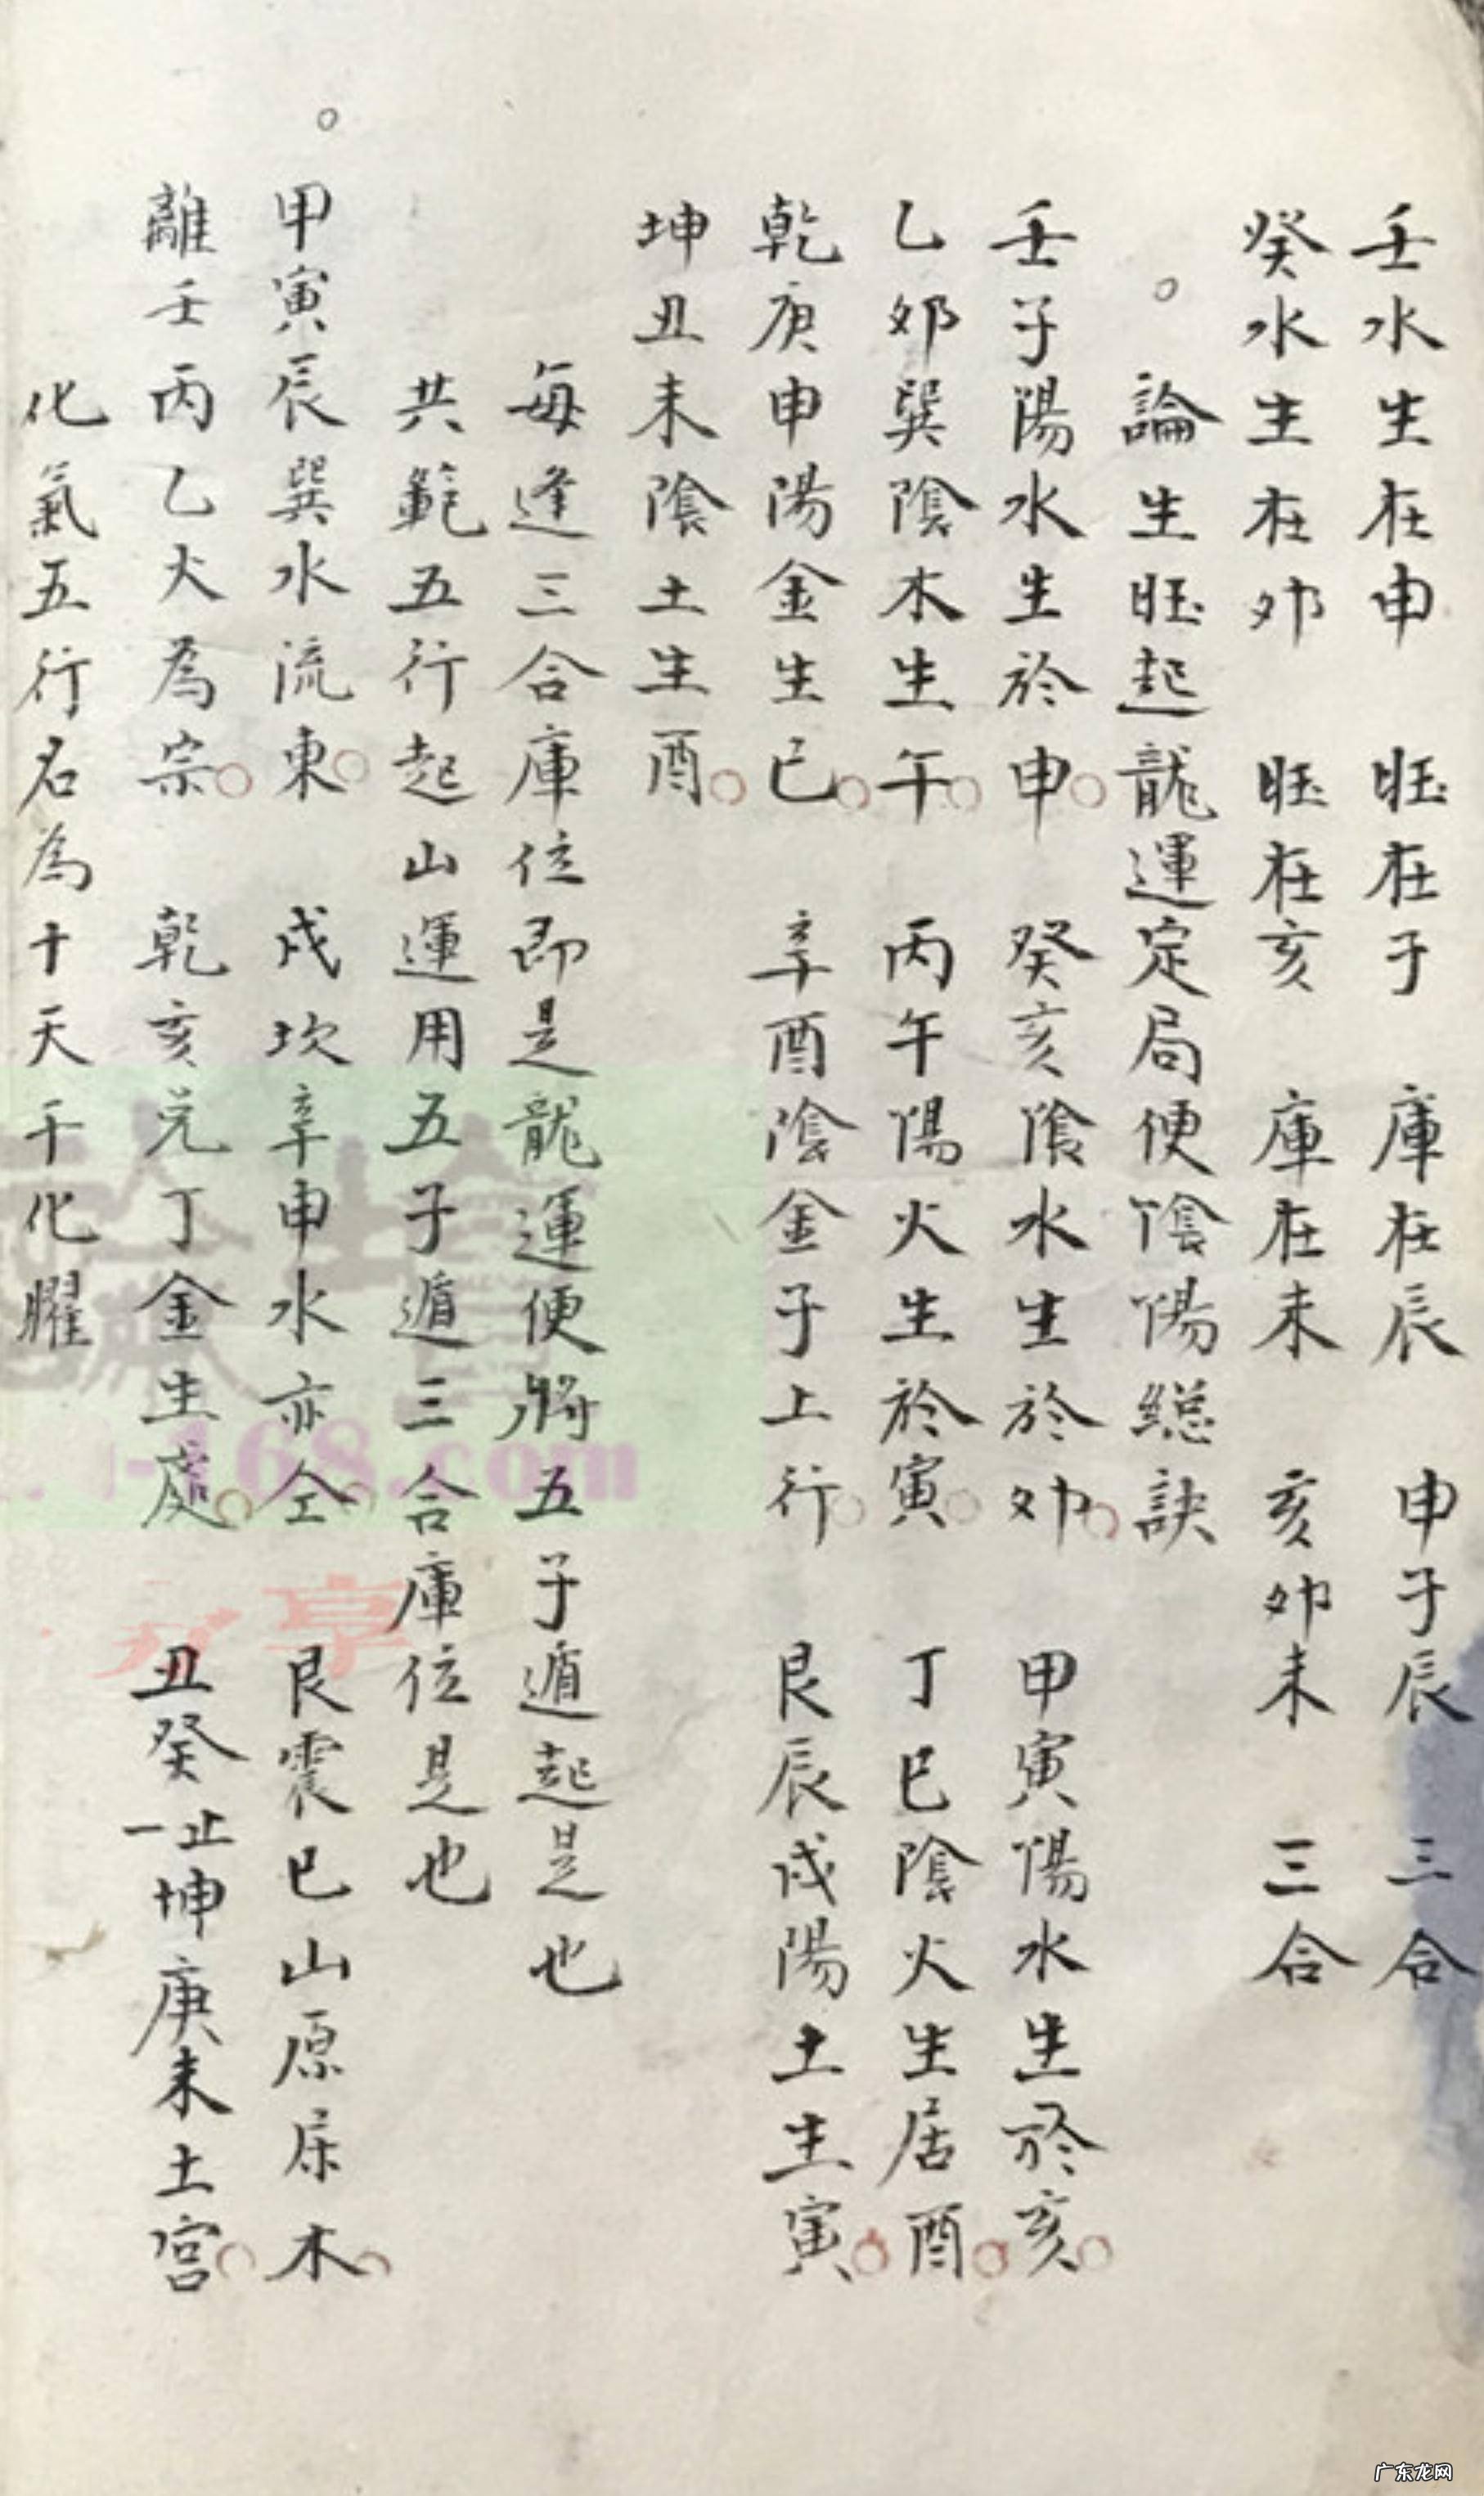 壬水生在申　旺在子　庫在辰　申子辰　三合
癸水生在夘　旺在亥　庫在未　亥夘未　三合
。論生旺起龍運定局便陰陽総訣
壬子陽水生於申。癸亥陰水生於夘。甲寅陽水生於亥。
乙夘巽陰木生午。丙午陽火生於寅。丁巳陰火生居酉。
乾庚申陽金生巳。辛酉陰金子上行。艮辰戌陽土生寅。
坤丑未陰土生酉。
每逢三合庫位即是龍運便將五子遁起是也
共範五行起山運用五子遁三合庫位是也
。甲寅辰巽水流東。戌坎辛申水亦仝。艮震巳山原屎木。
離壬丙乙火為宗。乾亥兌丁金生處。丑癸一止坤庚未土宮。
化氣五行名為十天干化曜
-168.com
分享
广东龙网